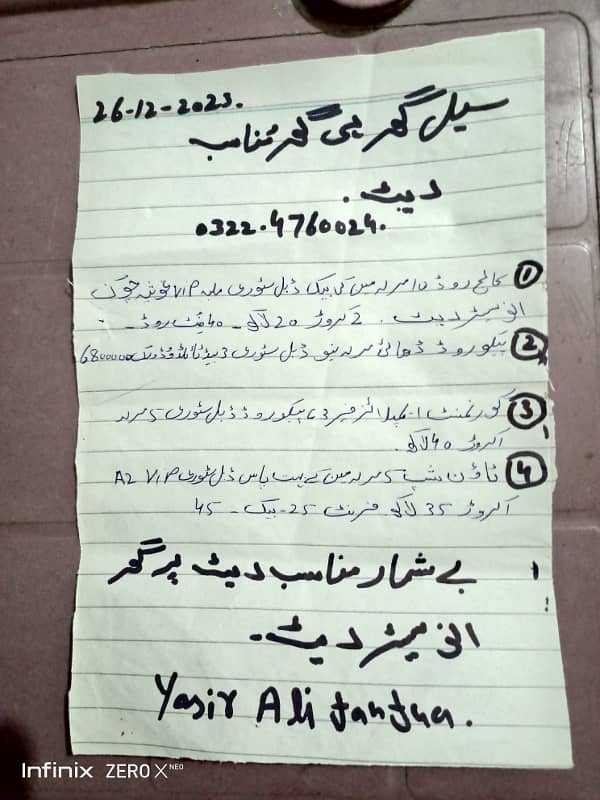 26-12-2023.
سیل گھر ہی گھر مناسب
ریٹ .
0322.4760024.
① کالج روڈ 10 مرلہ میں کی بیک ڈبل سٹوری VIP چوک
انویسٹر ریٹ . 2 کروڑ 20 لاکھ - 40 فٹ روڈ -
② پیکو روڈ ڈھائی مرلہ نیو ڈبل سٹوری 3 بیڈ 6800000
③ گورنمنٹ ایمپلائز فیز 3 پیکو روڈ ڈبل سٹوری 5 مرلہ
1 کروڑ 40 لاکھ.
④ ٹاؤن شپ 5 مرلہ مین کے بہت پاس ڈبل سٹوری A2 VIP
1 کروڑ 35 لاکھ فرنٹ 25 - بیک - 45
بے شمار مناسب ریٹ پر گھر
انویسٹر ریٹ -
Yasir Ali Janjua.
Infinix ZERO X NEO